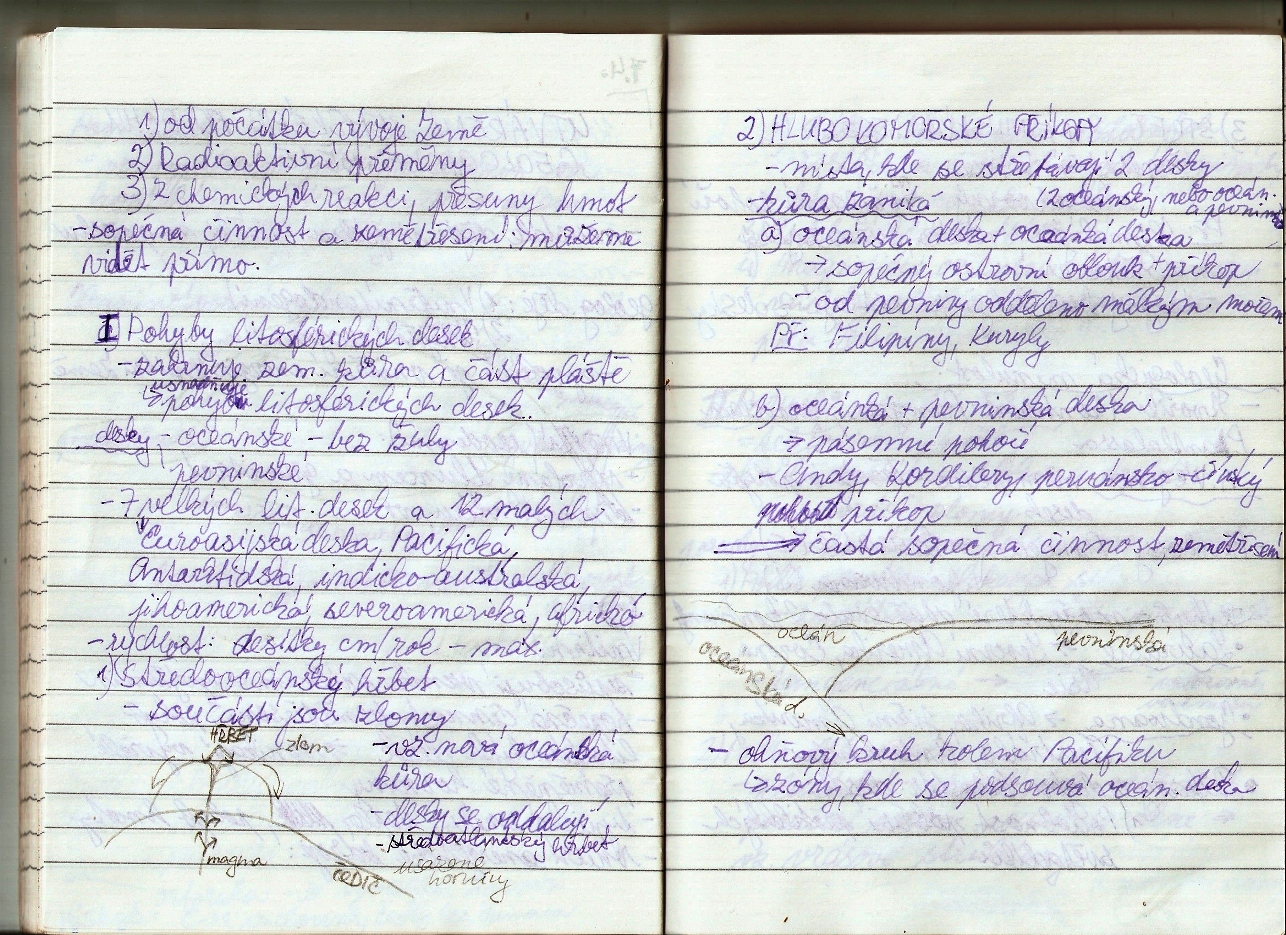 1) od počátku vývoje Země
2) Radioaktivní přeměny
3) Z chemických reakcí, přesuny hmot
- sopečná činnost a zemětřesení: můžeme
vidět přímo.
I) Pohyby litosférických desek
- zahrnuje zem. kůra a část pláště
usnadňuje
↳ pohyb litosférických desek.
desky - oceánské - bez žuly
pevninské
- 7 velkých lit. desek a 12 malých
↓ Euroasijská deska, Pacifická,
Antarktidská, indicko-australská,
jihoamerická, severoamerická, africká
- rychlost: desítky cm/rok - max.
1) Středooceánský hřbet
- součástí jsou zlomy
HŘBET
zlom
- vz. nová oceánská
kůra
- desky se oddalují
- středoatlantský hřbet
magma
ČEDIČ
usazené
horniny
7.4.
2) HLUBOKOMORSKÉ PŘÍKOPY
- místa, kde se střetávají 2 desky
- kůra zaniká (2 oceánský nebo oceán.
a pevnins
a) oceánská deska + oceánká deska
→ sopečný ostrovní oblouk + příkop
- od pevniny odděleno mělkým mořem
PŘ: Filipíny, Kuryly
b) oceánká + pevninská deska
→ pásemné pohoří
- Andy, Kordillery, peruánsko-čílský
příkop
→ častá sopečná činnost, zemětřesení
oceán
pevninská
oceánská d.
- ohňový kruh kolem Pacifiku
↳ zóny, kde se podsouvá oceán. deska